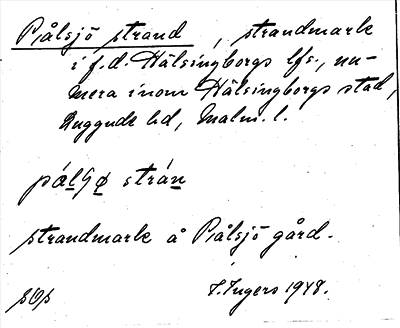 Pålsjö strand, strandmark
i f.d. Hälsingborgs lfs., nu-
mera inom Hälsingborgs stad,
Luggude hd, Malm. l.
strandmark å Pålsjö gård.
I. Ingers 1948.